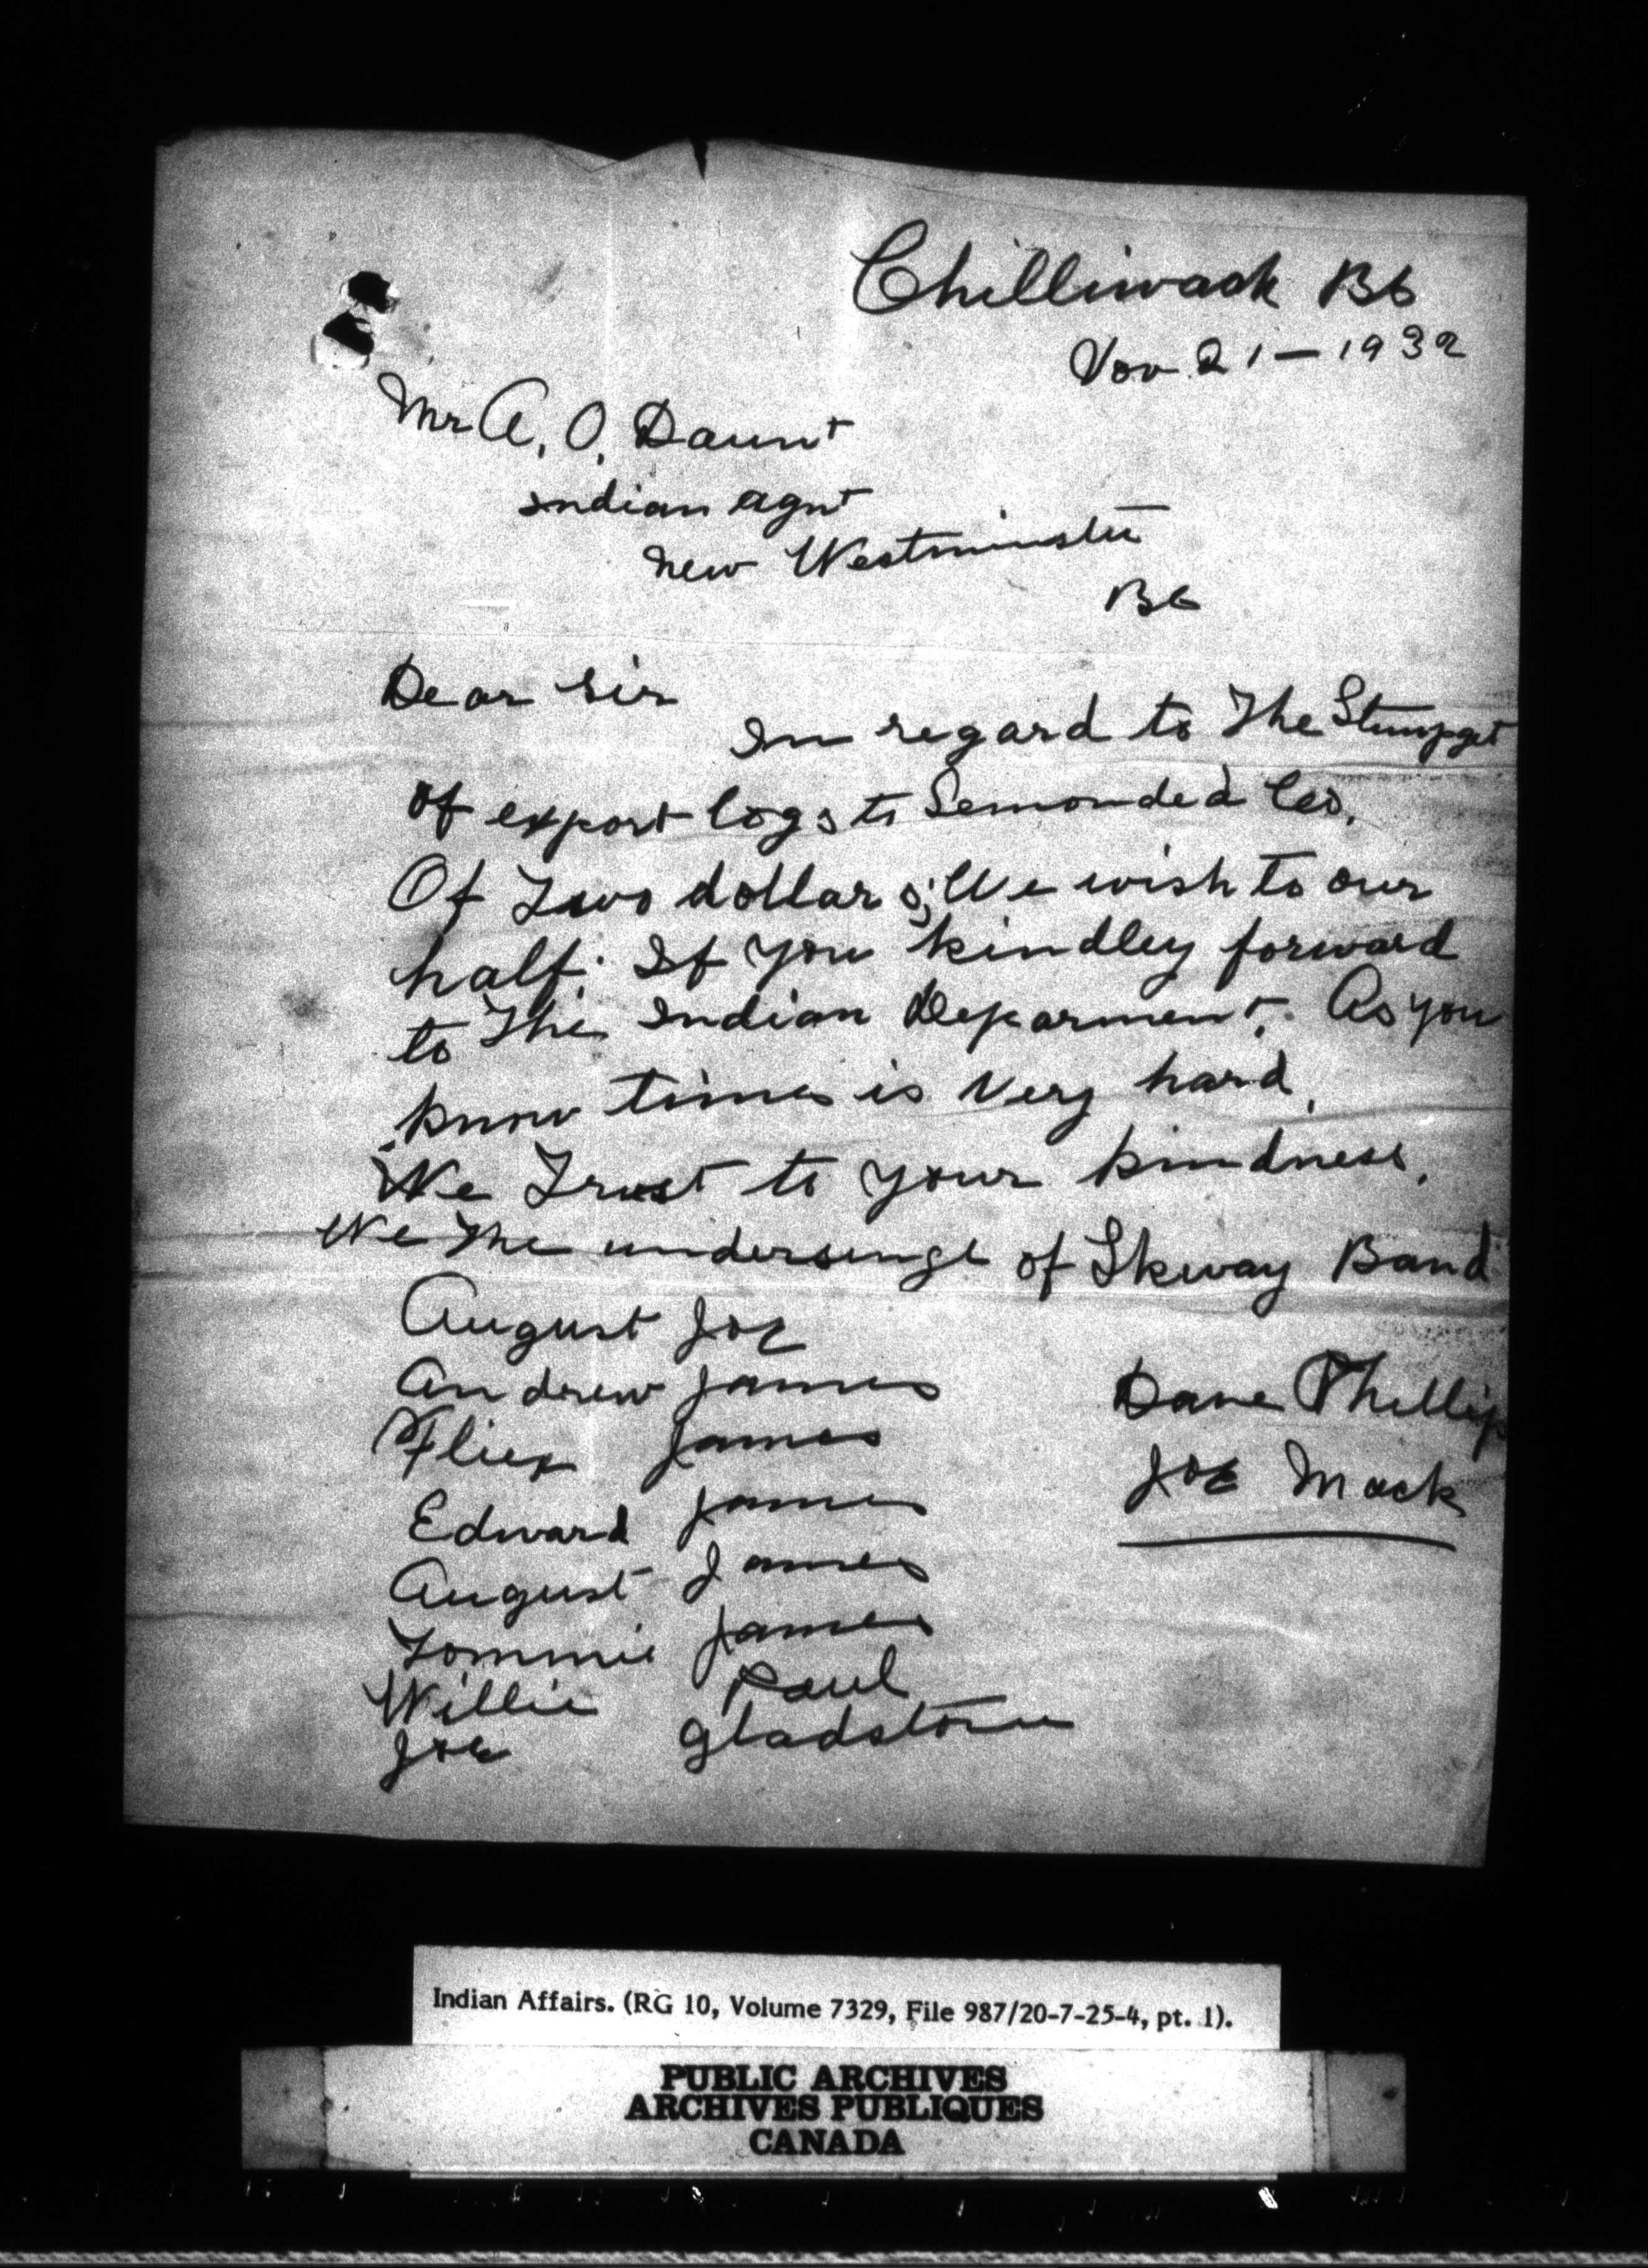 Chilliwack BC
Nov. 21 — 1932
Mr A. O. Daunt
Indian Agnt
New Westminster
BC
Dear Sir
In regard to The Stumpget
of export logs to Semonded Co.
Of Two dollars; We wish to our
half. If you kindley forward
to The Indian Deparment. As you
know times is very hard,
We Trust to your kindness.
We The undersingt of Skway Band
August Joe
Andrew James
Fliex James
Edward James
August James
Tommie James
Willie Paul
Joe Gladstone
Dave Phillip
Joe Mack
Indian Affairs. (RG 10, Volume 7329, File 987/20-7-25-4, pt. 1).
PUBLIC ARCHIVES
ARCHIVES PUBLIQUES
CANADA